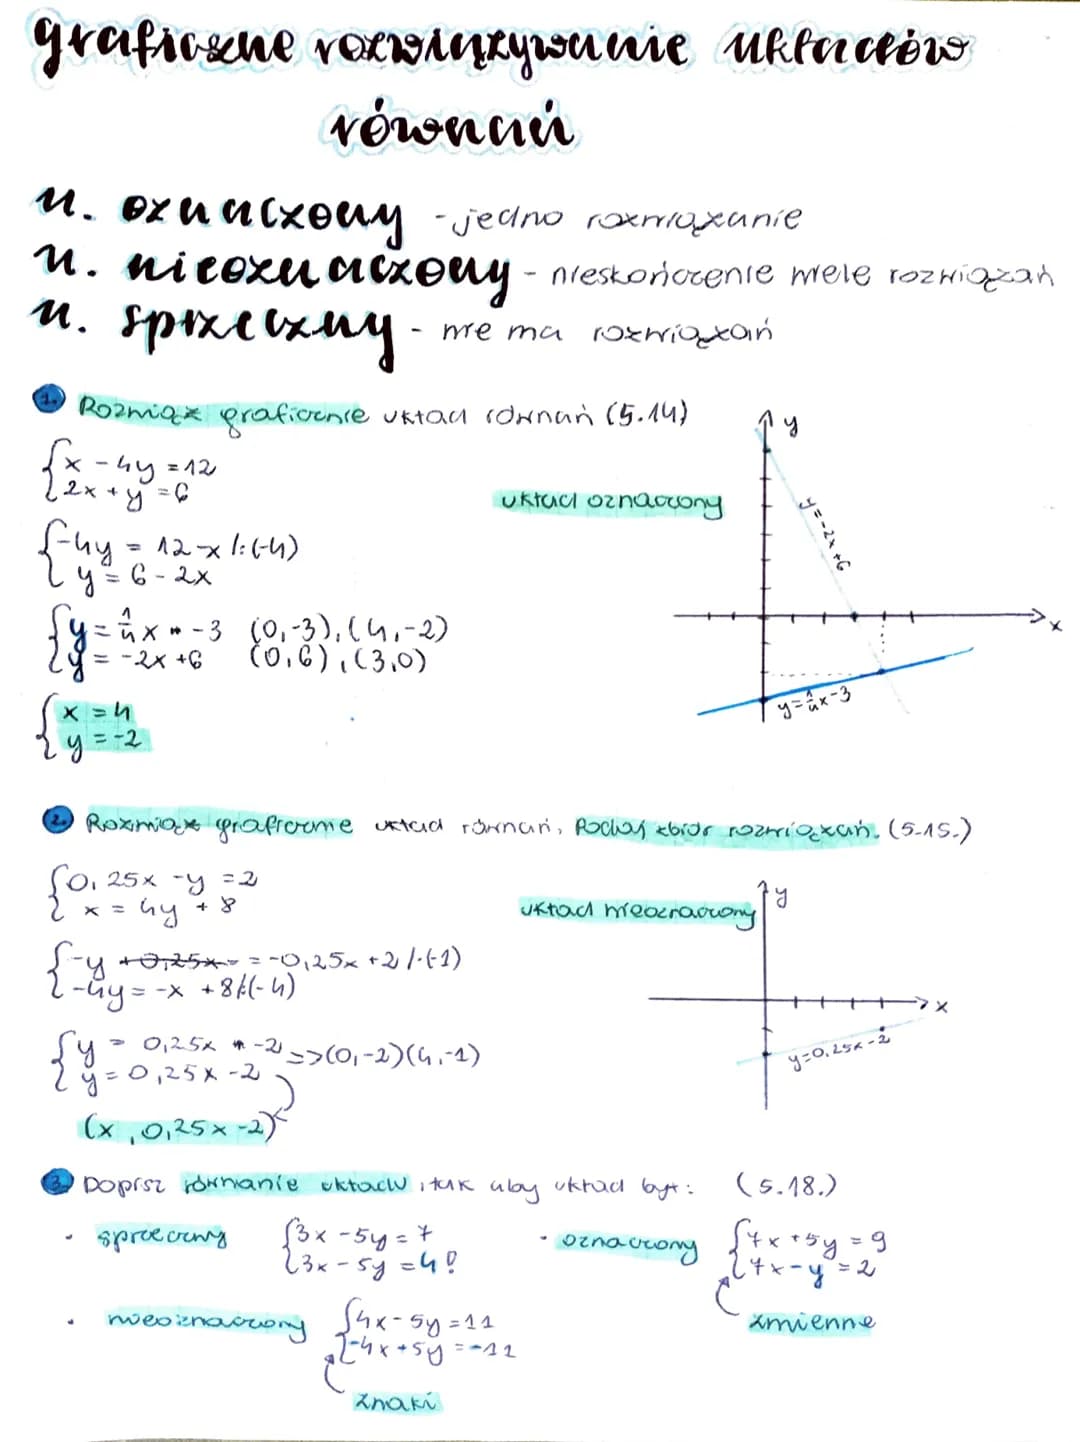 graficzne rozwiązywanie układów
równań
u. oznaczony - jedno rozwiązanie
u. nieoznaczony - nieskończenie wiele rozwiązań
u. sprzeczny - nie ma rozwiązań
1. Rozwiąż graficznie układ równań (5.14)
{x - 4y = 12
{2x + y = 6
układ oznaczony
{-4y = 12-x /:(-4)
{y = 6 - 2x
{y = 1/4 x - 3 (0,-3), (4,-2)
{y = -2x +6 (0,6), (3,0)
{x = 4
{y = -2
y
y=-2x+6
x
y=1/4x-3
2. Rozwiąż graficznie układ równań, Podaj zbiór rozwiązań. (5.15.)
{0,25x - y = 2
{x = 4y + 8
układ nieoznaczony
{-y = -0,25x +2 /·(-1)
{-4y = -x +8 /:(-4)
{y = 0,25x -2 =>(0,-2)(4,-1)
{y = 0,25x -2
(x, 0,25x -2)
y
x
y=0,25x-2
3. Dopisz równanie układu, tak aby układ był: (5.18.)
• sprzeczny {3x - 5y = 7
{3x - 5y = 4!
• oznaczony {7x + 5y = 9
{7x - y = 2
zmienne
• nieoznaczony {4x - 5y = 11
{-4x + 5y = -11
znaki